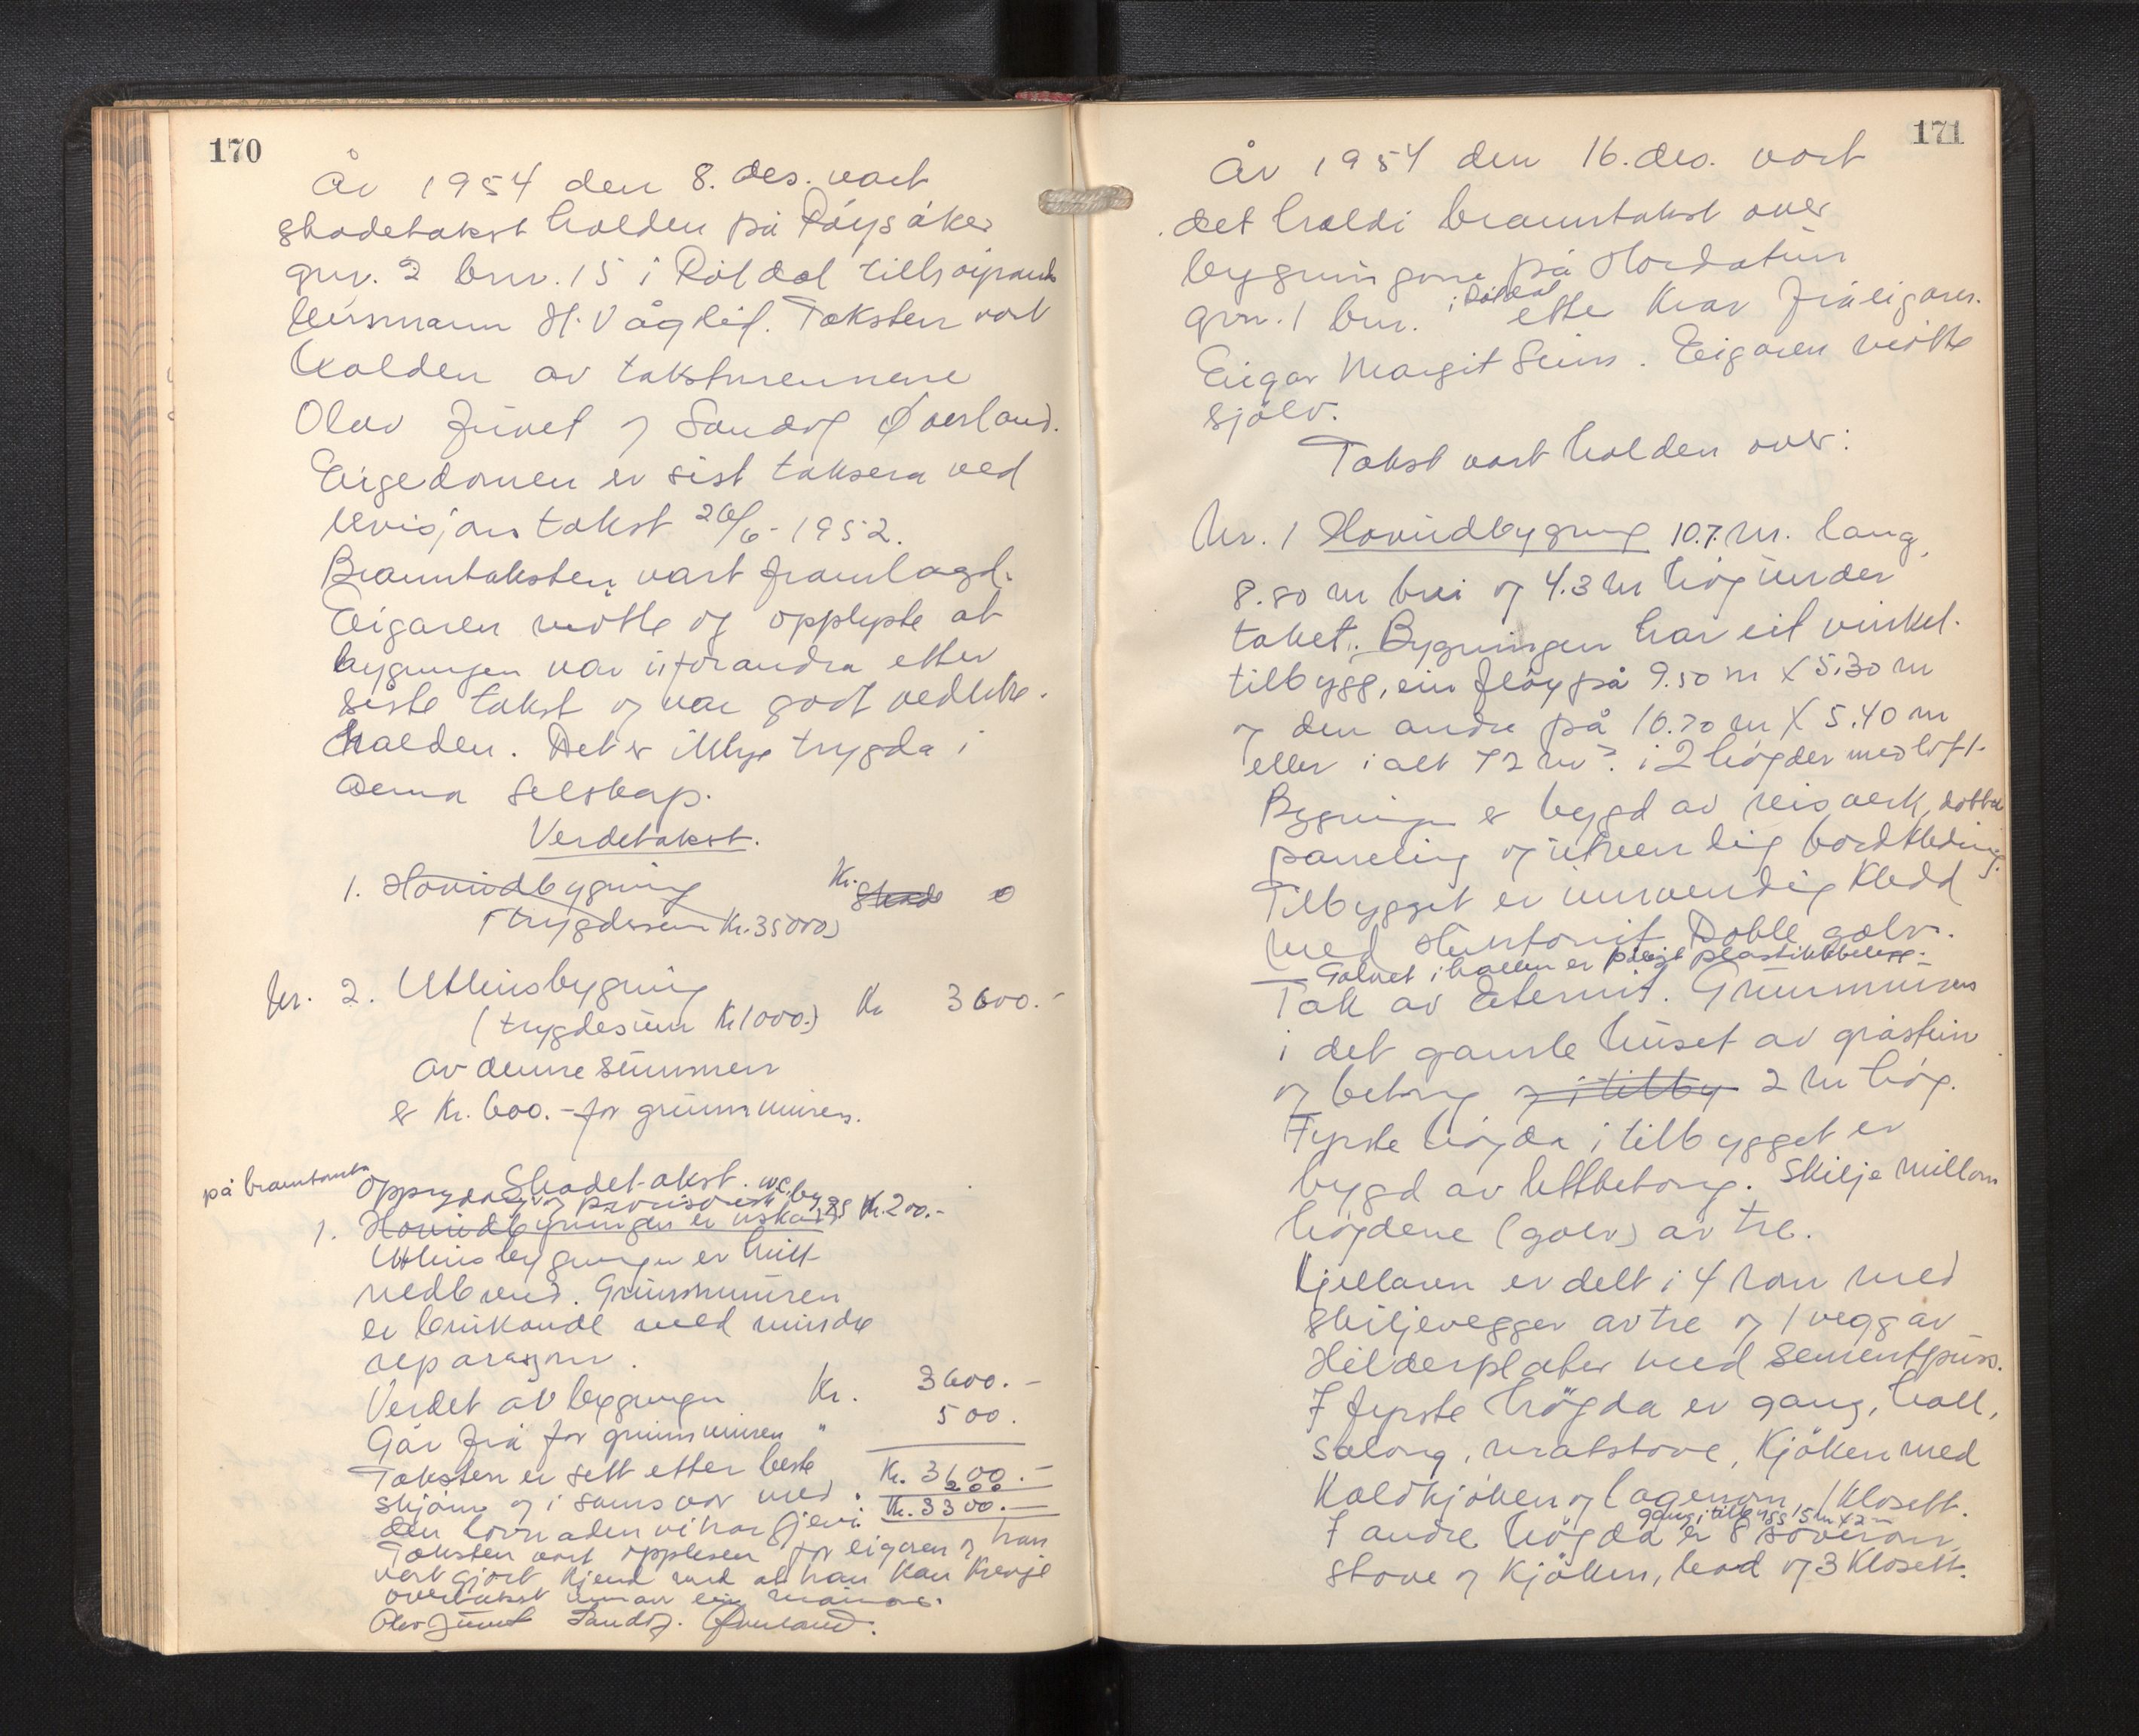 170
År 1954 den 8. des. vart
skadetakst halden på Røysåker
gnr. 2 bnr. 15 i Röldal tilhøyrande
lensmann H. Vågslid. Taksten vart
halden av takstmennene
Olav Juvet og Sandof Øverland.
Eigedomen er sist taksera ved
revisjons takst 20/6-1952.
Branntaksten vart framlagd.
Eigaren møtte og opplyste at
bygningen var uforandra etter
siste takst og var godt vedlike-
halden. Det er ikkje trygda i
anna selskap.
Verdetakst.
1. Hovudbygning Kr. Skade 0
(trygdesum Kr. 35000)
Nr. 2. Uthusbygning
(trygdesum Kr 1000.) Kr 3600.-
av denne summen
er Kr. 600.- for grunnmuren.
Skadetakst.
på branntomta
Opprydding og provisorisk wc. bygg Kr. 200.-
1. Hovudbygningen er uskadd
Uthusbygningen er heilt
nedbrend. Grunnmuren
er brukande med mindre
reparasjonar.
Verdet av bygningen Kr. 3600.-
Går frå for grunnmuren " 500.
Taksten er sett etter beste Kr. 3600.-
200
skjönn og i samsvar med Kr. 3300.-
den lovnaden vi har gjevi.
Taksten vart opplesen for eigaren og han
vart gjort kjend med at han kan krevje
overtakst innan ein månad.
Olav Juvet Sandof Øverland.
171
År 1954 den 16. des. vart
det haldi branntakst over
bygningane på Hordatun
i Röldal
gnr. 1 bnr. etter krav frå eigaren.
Eigar Margit Seim. Eigaren møtte
sjölv.
Takst vart halden over:
Nr. 1 Hovudbygning 10.7 m. lang,
8.80 m brei og 4.3 m høg under
taket. Bygningen har eit vinkel-
tilbygg, ein fløy på 9.50 m X 5.30 m
og den andre på 10.70 m X 5.40 m
eller i alt 72 m². i 2 høgder med loft.
Bygningen er bygd av reisverk, dobbel
paneling og utvendig bordkledning.
Tilbygget er innvendig kledd
med Huntonit. Doble golv.
Golvet i hallen er pålagt plastikkbelegg.
Tak av Eternit. Grunnmuren
i det gamle huset av gråstein
og betong og i tilby 2 m høg.
Fyrste høgda i tilbygget er
bygd av lettbetong. Skilje millom
høgdene (golv) av tre.
Kjellaren er delt i 4 rom med
skiljevegger av tre og 1 vegg av
Hilderplater med sementpuss.
I fyrste høgda er gang, hall,
salong, matstove, kjöken med
kaldkjöken og lagerrom, 1 klosett.
gang i tilbygg 5 m x 2 m
I andre høgda er 8 soverom,
stove og kjöken, bad og 3 klosett.